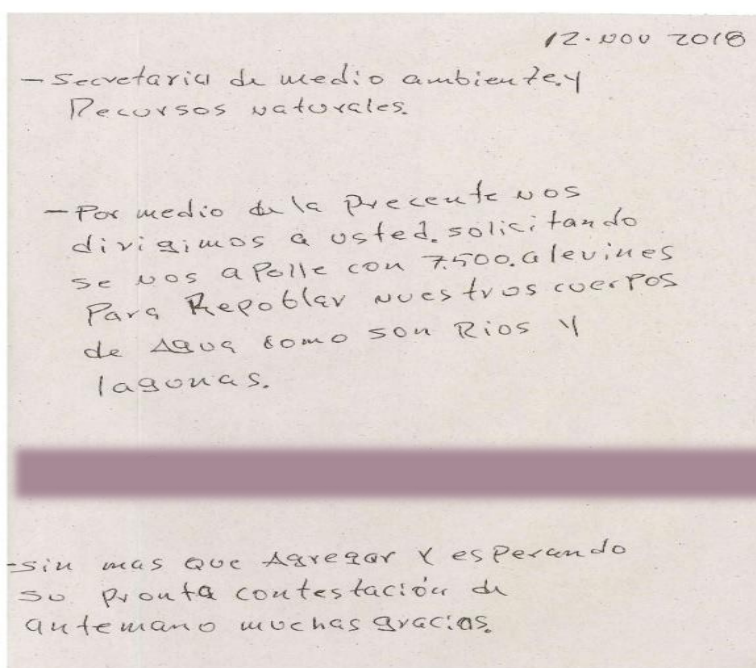 12. NOV 2018
- Secretaria de medio ambiente.y
Recursos naturales.
- Por medio de la precente nos
dirigimos a usted. solicitando
se nos apolle con 7.500. alevines
Para Repoblar nuestros cuerpos
de Agua como son Rios Y
lagunas.
- sin mas que Agregar Y esperando
su pronta contestación de
antemano muchas gracias.